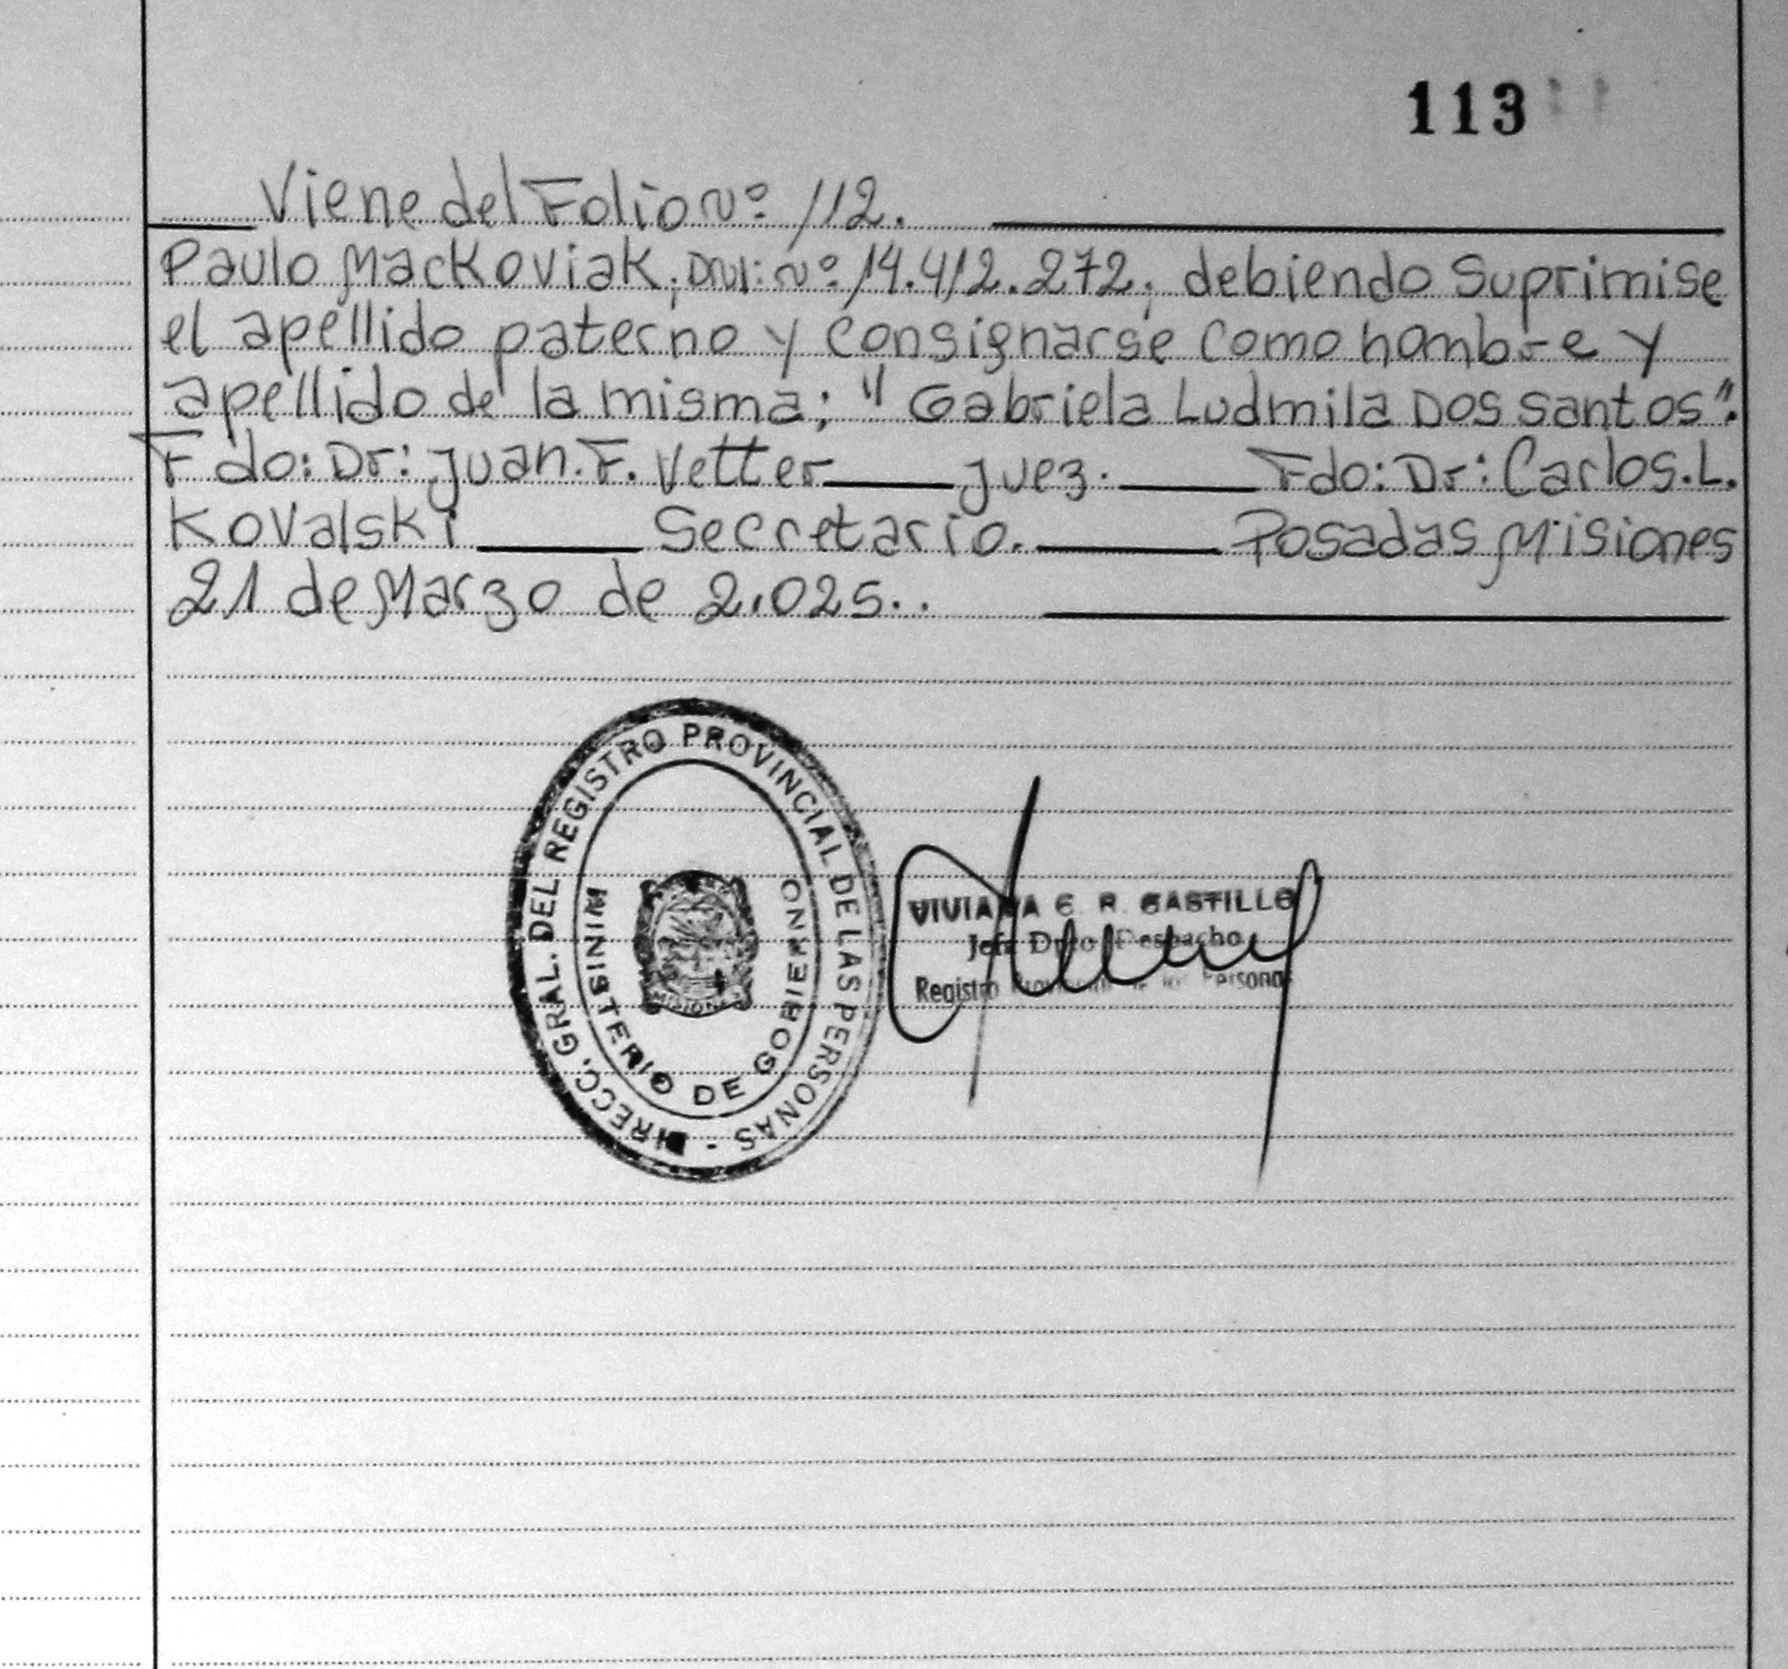 113
Viene del Folio Nº 112.
Paulo Mackoviak, DNI: Nº 14.412.272, debiendo suprimise
el apellido paterno y consignarse como nombre y
apellido de la misma; "Gabriela Ludmila Dos Santos".
Fdo: Dr: Juan. F. Vetter juez. Fdo: Dr: Carlos. L.
Kovalski Secretario. Posadas Misiones
21 de Marzo de 2.025..
DIRECC. GRAL. DEL REGISTRO PROVINCIAL DE LAS PERSONAS -
MINISTERIO DE GOBIERNO
MISIONES
VIVIANA E. R. CASTILLO
Jefa Dpto Despacho
Registro Provincial de las Personas